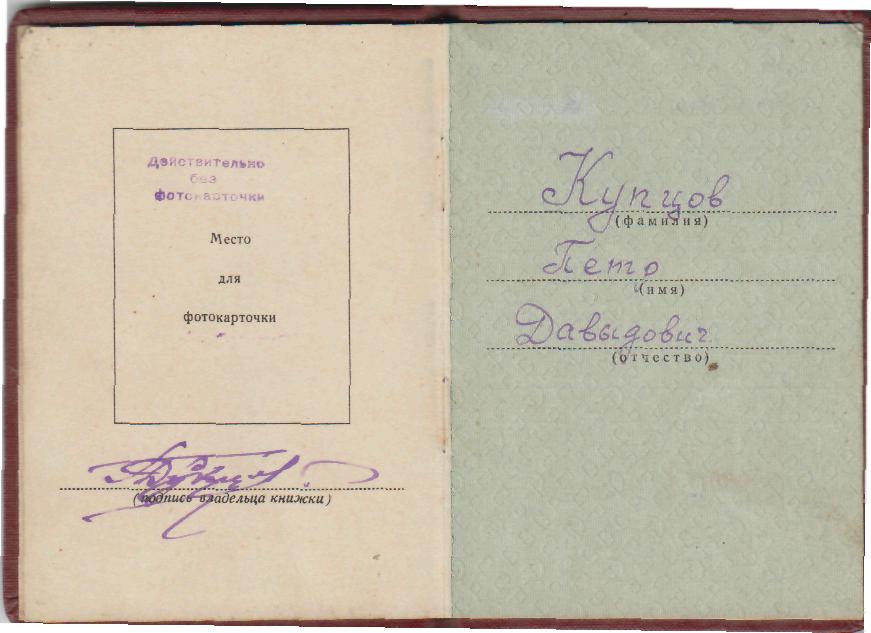 Действительно
без
фотокарточки
Место
для
фотокарточки
(подпись владельца книжки)
Купцов
(фамилия)
Петр
(имя)
Давыдович
(отчество)